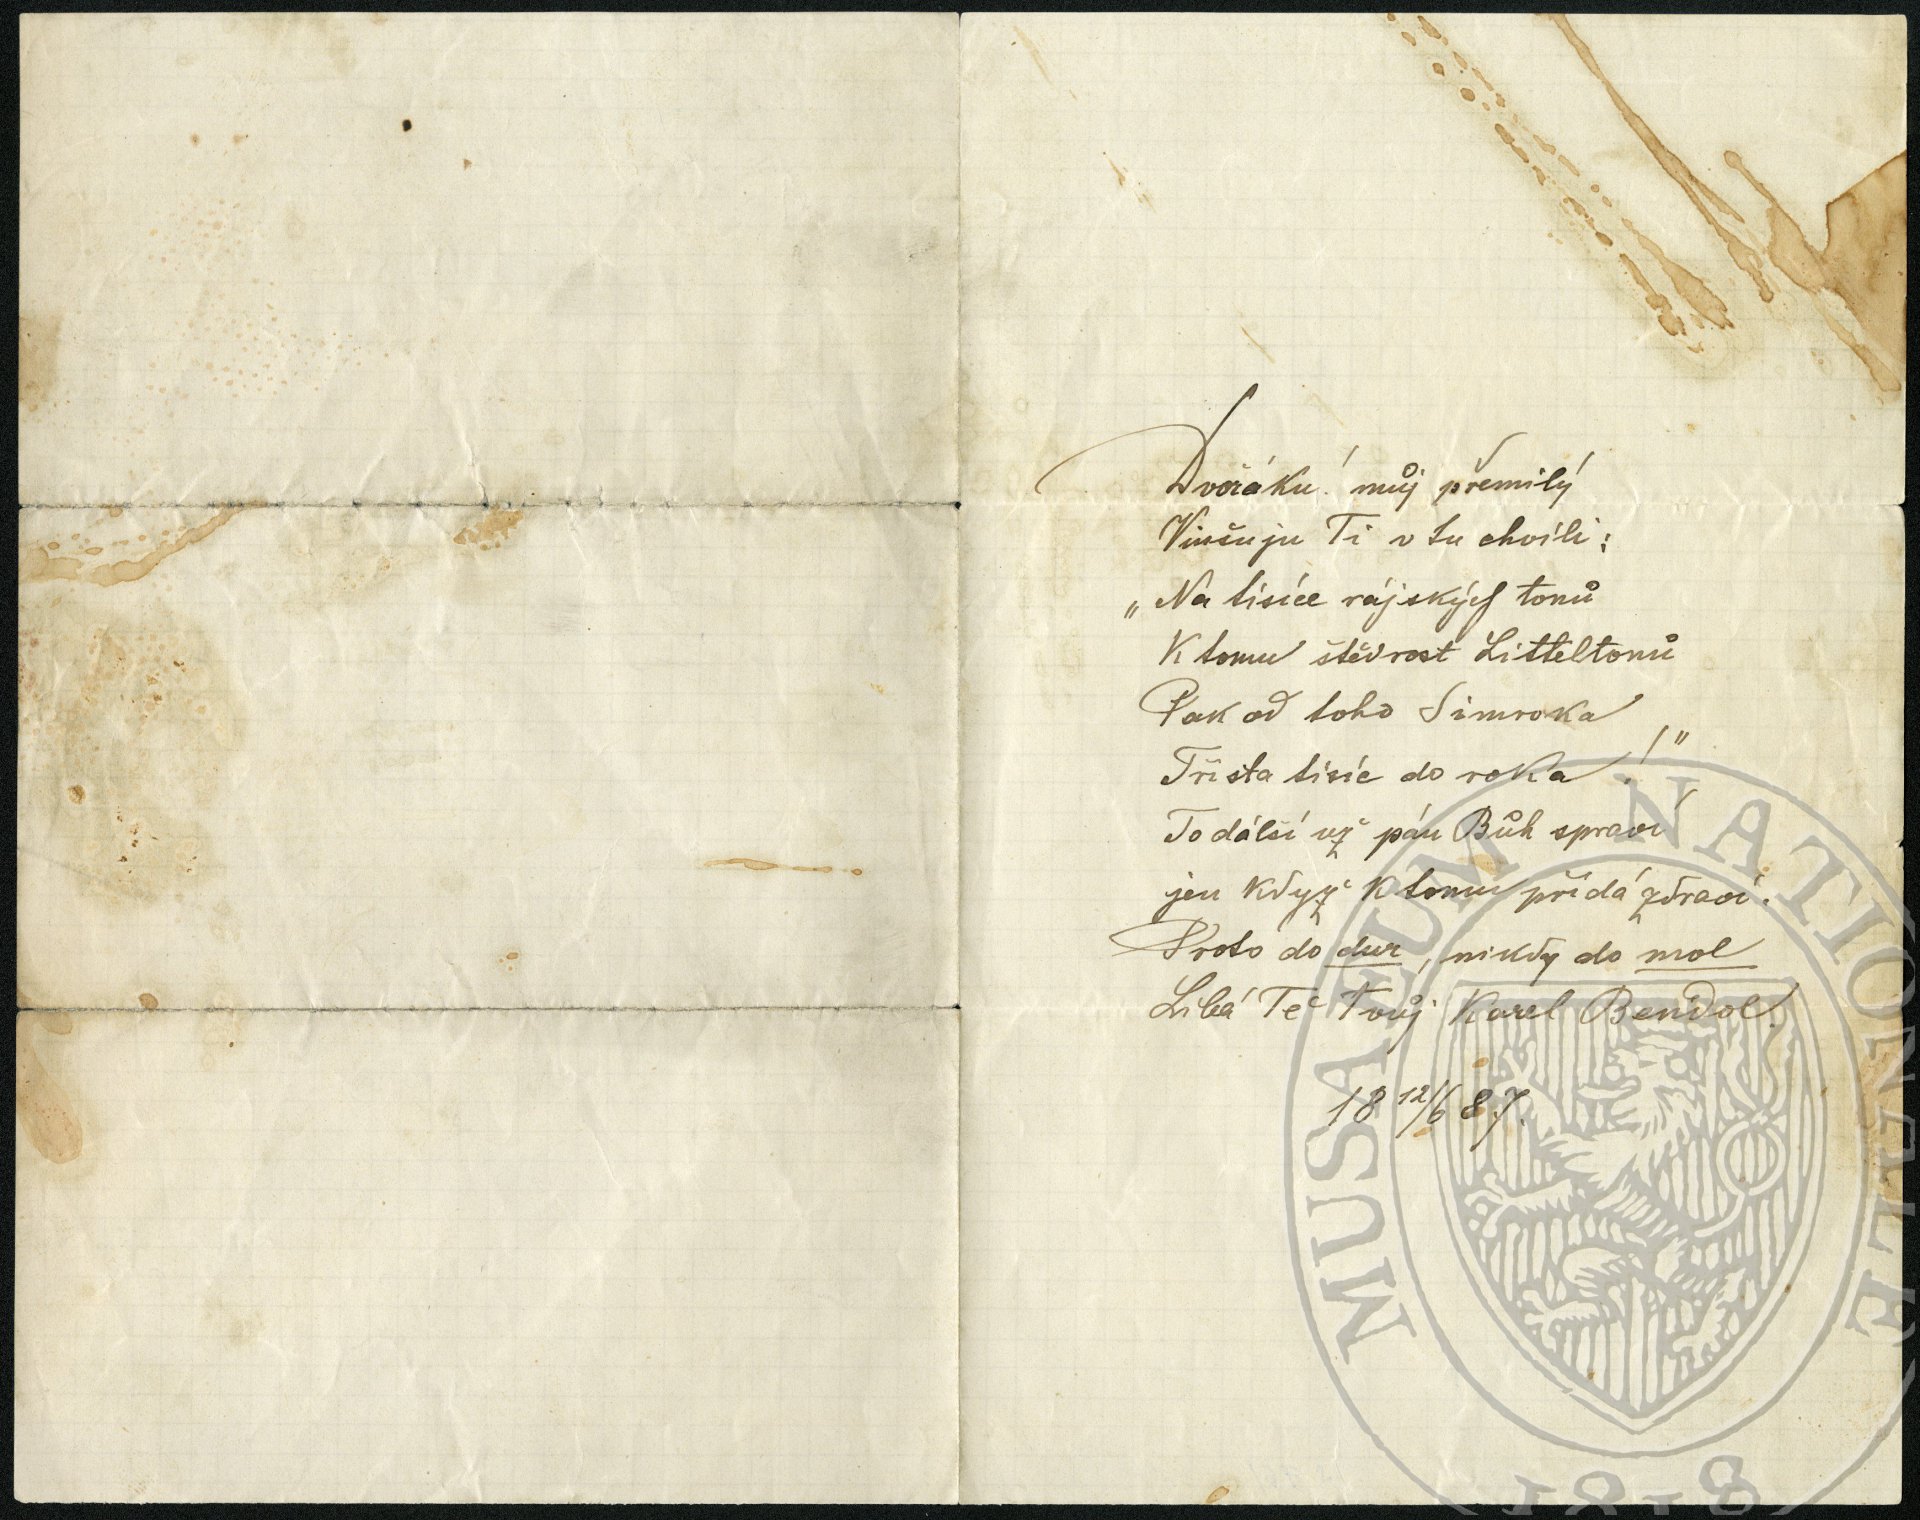 Dvořáku! můj přemilý
Vinšuju Ti v tu chvíli:
„Na tisíce rájských tonů
K tomu štědrost Litteltonů
Pak od toho Simroka
Třista tisíc do roka!"
To další už pán Bůh spraví
jen když k tomu přidá zdraví.
Proto do dur, nikdy do mol
Líbá Tě Tvůj Karel Bendl.
18 12/6 87.
MUSAEUM NATIONALE
1818